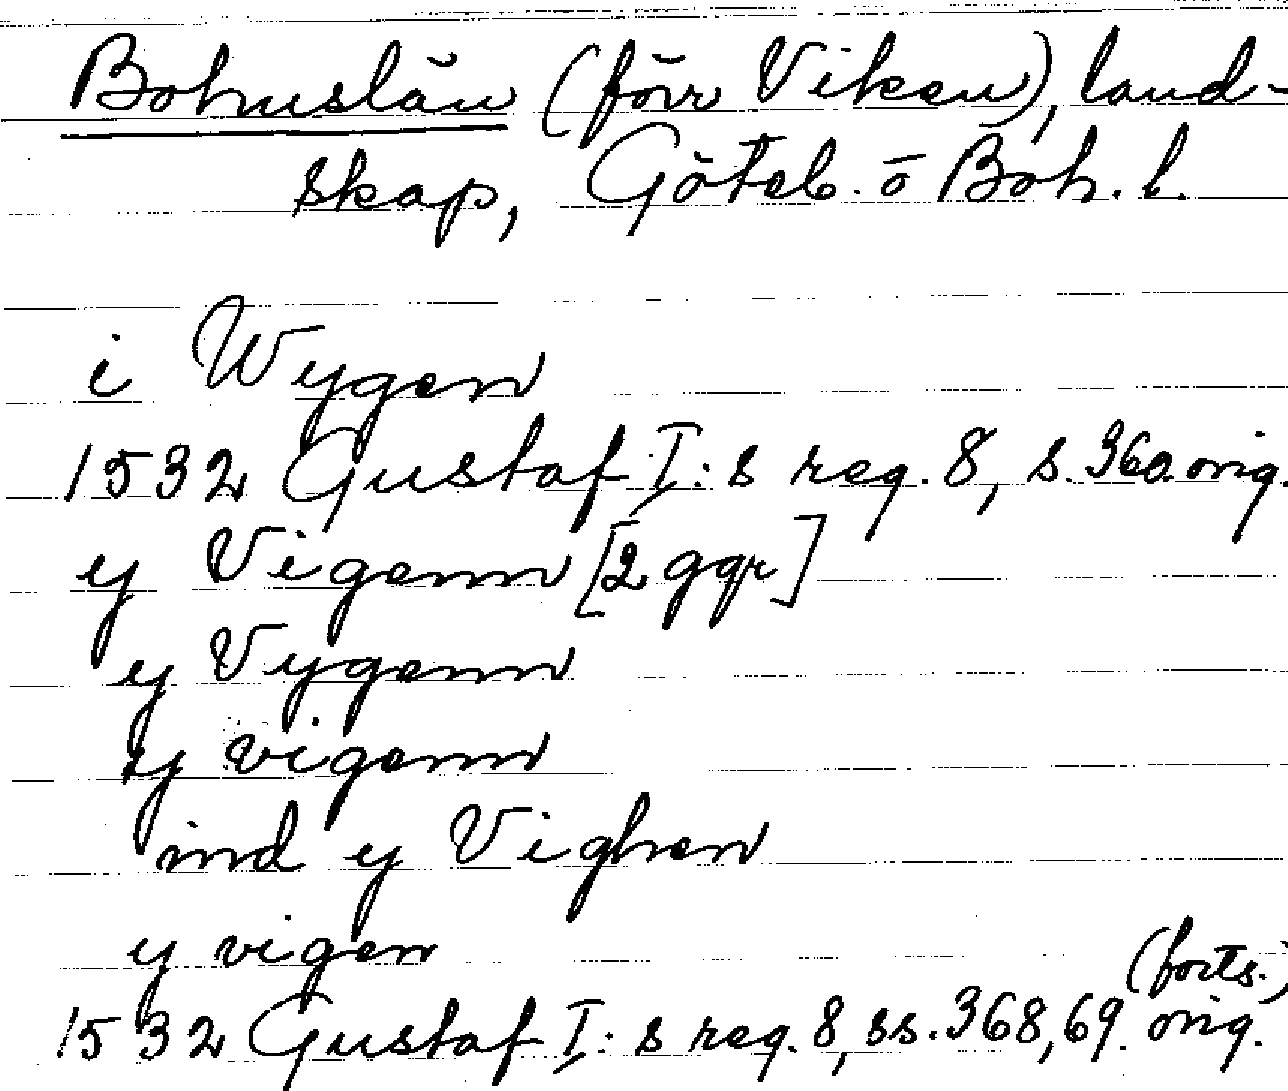 Bohuslän (förr Viken), land-
skap, Göteb. o Boh. l.
i Wygen
1532 Gustaf I:s reg. 8, s. 360. orig.
y Vigenn [2 ggr]
y Vygenn
y vigenn
ind y Vighen
y vigen
(forts.)
1532 Gustaf I:s reg. 8, ss. 368, 69. orig.